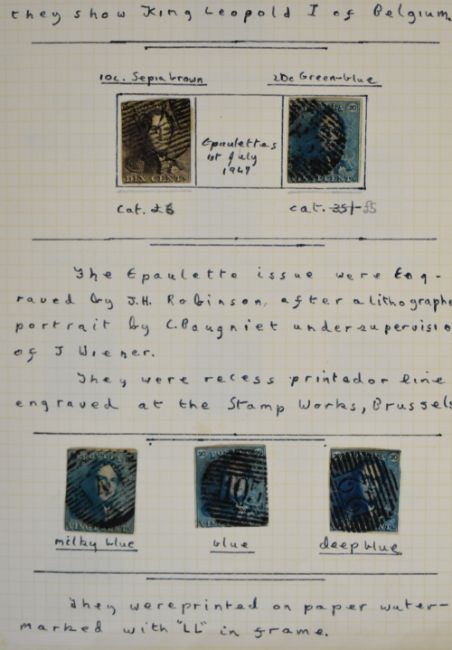 they show King Leopold I of Belgium.
10c. Sepia brown 20c Green-blue
Epaulettes
1st July
1949
DIX CENTS
cat. cat. 35/-
The Epaulette issue were Eng-
raved by J.H. Robinson, after a lithographe
portrait by C. Baugniet under supervisio
of J Wiener.
They were recess printed or line
engraved at the Stamp Works, Brussels
milky blue blue deep blue
They were printed on paper water-
marked with "LL" in frame.